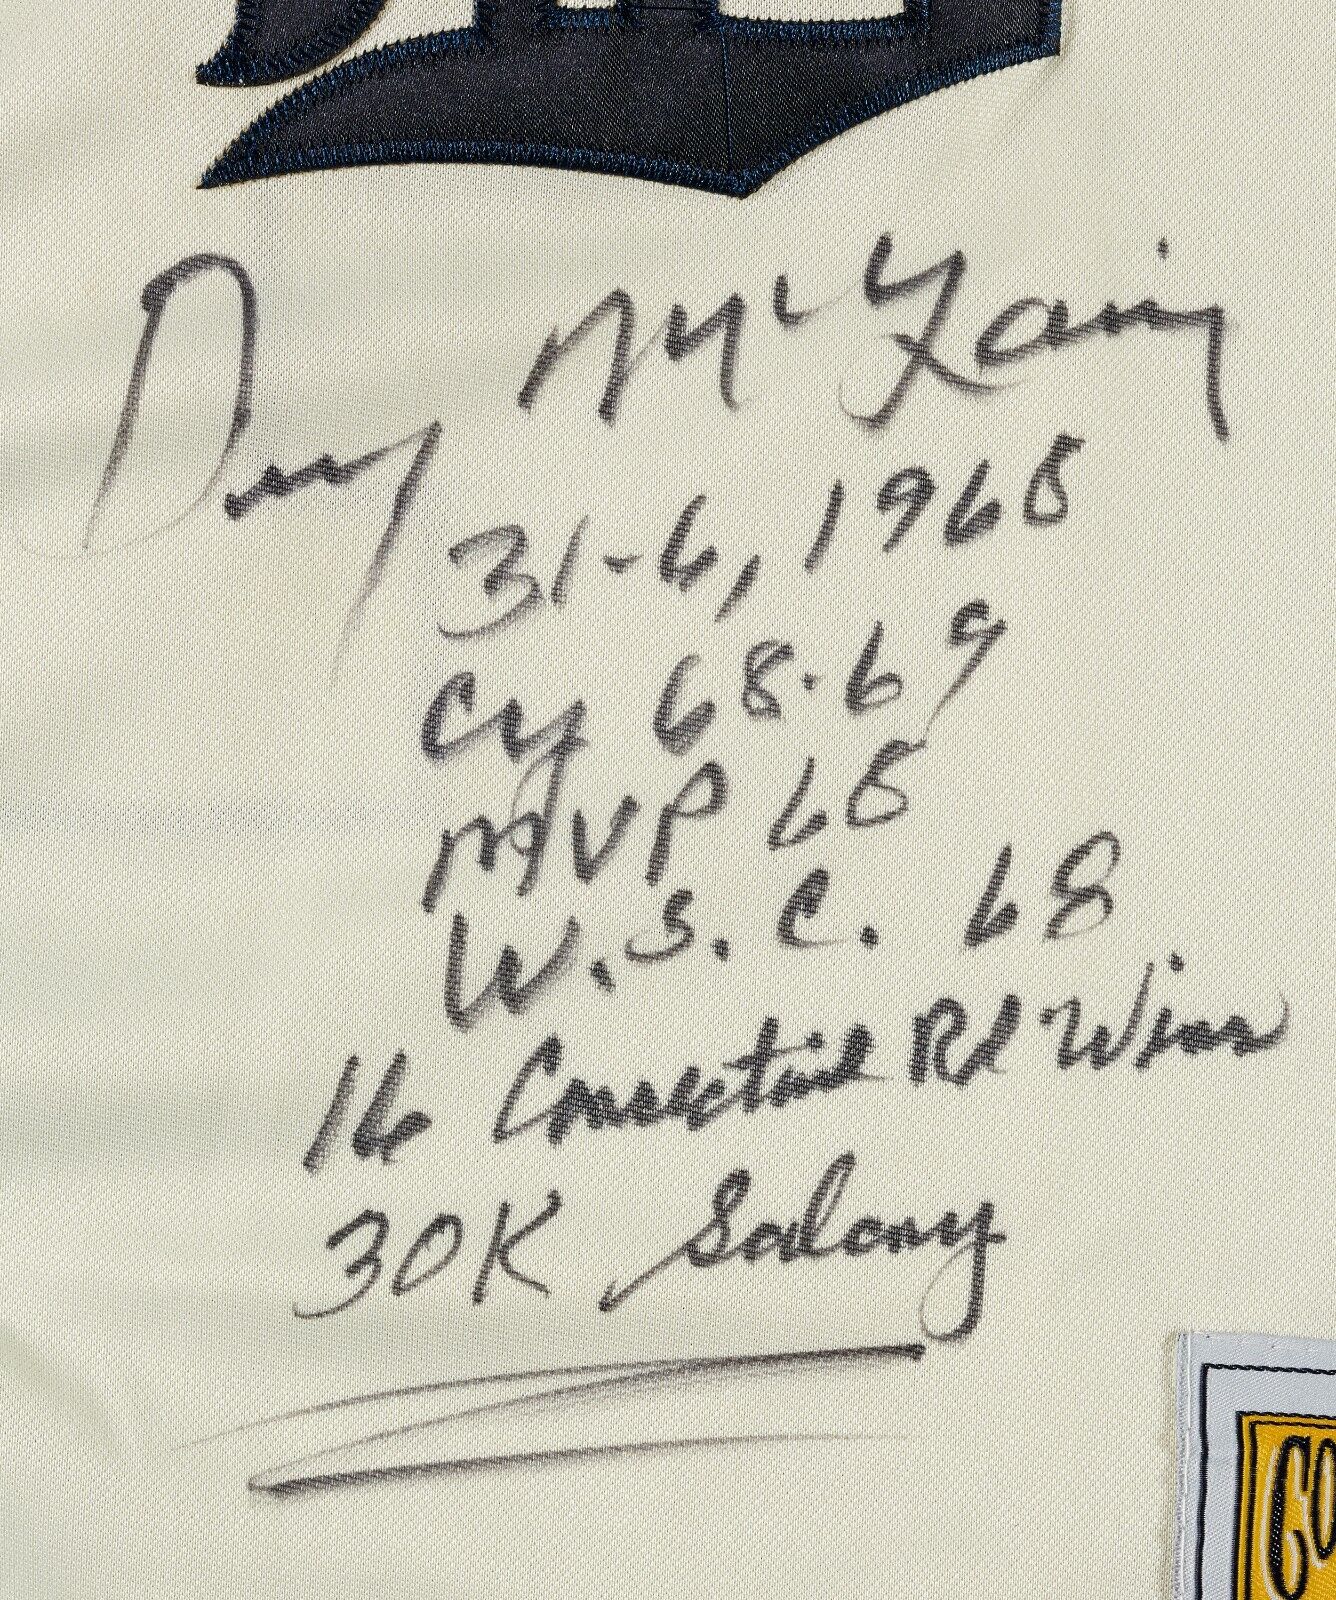 Denny McLain
31-6, 1968
Cy 68-69
MVP 68
W.S.C. 68
16 Consecutive Rd Wins
30K Salary
Co